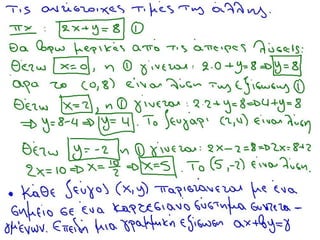 τις αντίστοιχες τιμές της άλλης.
πχ : 2x+y=8 ①
Θα βρω μερικές από τις άπειρες λύσεις:
Θέτω x=0, η ① γίνεται: 2·0+y=8⇒y=8
άρα το (0,8) είναι λύση της εξίσωσης ①
Θέτω x=2, η ① γίνεται: 2·2+y=8⇒4+y=8
⇒y=8-4⇒ y=4. Το ζευγάρι (2,4) είναι λύση
Θέτω y=-2 η ① γίνεται: 2x-2=8⇒2x=8+2
2x=10⇒x=10/2⇒x=5. Το (5,-2) είναι λύση.
• Κάθε ζεύγος (x,y) παριστάνεται με ένα
σημείο σε ένα καρτεσιανό σύστημα συντεταγ-
μένων. Επειδή μια γραμμική εξίσωση αx+βy=γ